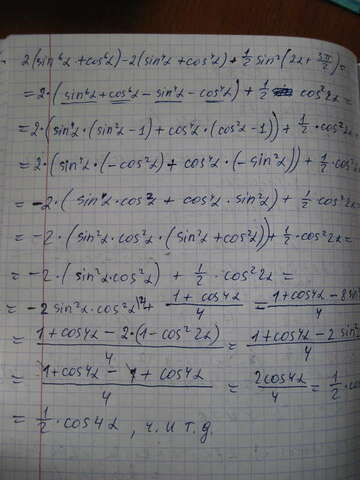 2(sin⁶α + cos⁶α) - 2(sin⁴α + cos⁴α) + 1/2 sin²(2α + 3π/2) =
= 2·(sin⁶α + cos⁶α - sin⁴α - cos⁴α) + 1/2 cos²2α =
= 2·(sin⁴α·(sin²α - 1) + cos⁴α·(cos²α - 1)) + 1/2·cos²2α
= 2·(sin⁴α·(-cos²α) + cos⁴α·(-sin²α)) + 1/2 cos²
= -2·(sin⁴α·cos²α + cos⁴α·sin²α) + 1/2·cos²2α
= -2·(sin²α·cos²α·(sin²α + cos²α)) + 1/2·cos²2α =
= -2·(sin²α·cos²α) + 1/2·cos²2α =
= -2 sin²α·cos²α + (1 + cos4α)/4 = (1 + cos4α - 8 sin²)/4
= (1 + cos4α - 2·(1 - cos²2α))/4 = (1 + cos4α - 2 sin²)/4
= (1 + cos4α - 1 + cos4α)/4 = 2cos4α/4 = 1/2·co
= 1/2·cos4α, ч. и т.д.